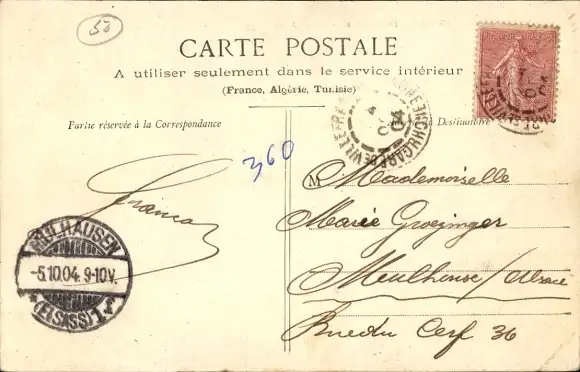 53
CARTE POSTALE
A utiliser seulement dans le service intérieur
(France, Algérie, Tunisie)
Partie réservée à la Correspondance
Destinataire
360
Mademoiselle
Marie Groezinger
Meulhouse / Alsace
Rue du Cerf 36
MÜLHAUSEN
-5.10.04. 9-10V.
(ELSASS) 1.